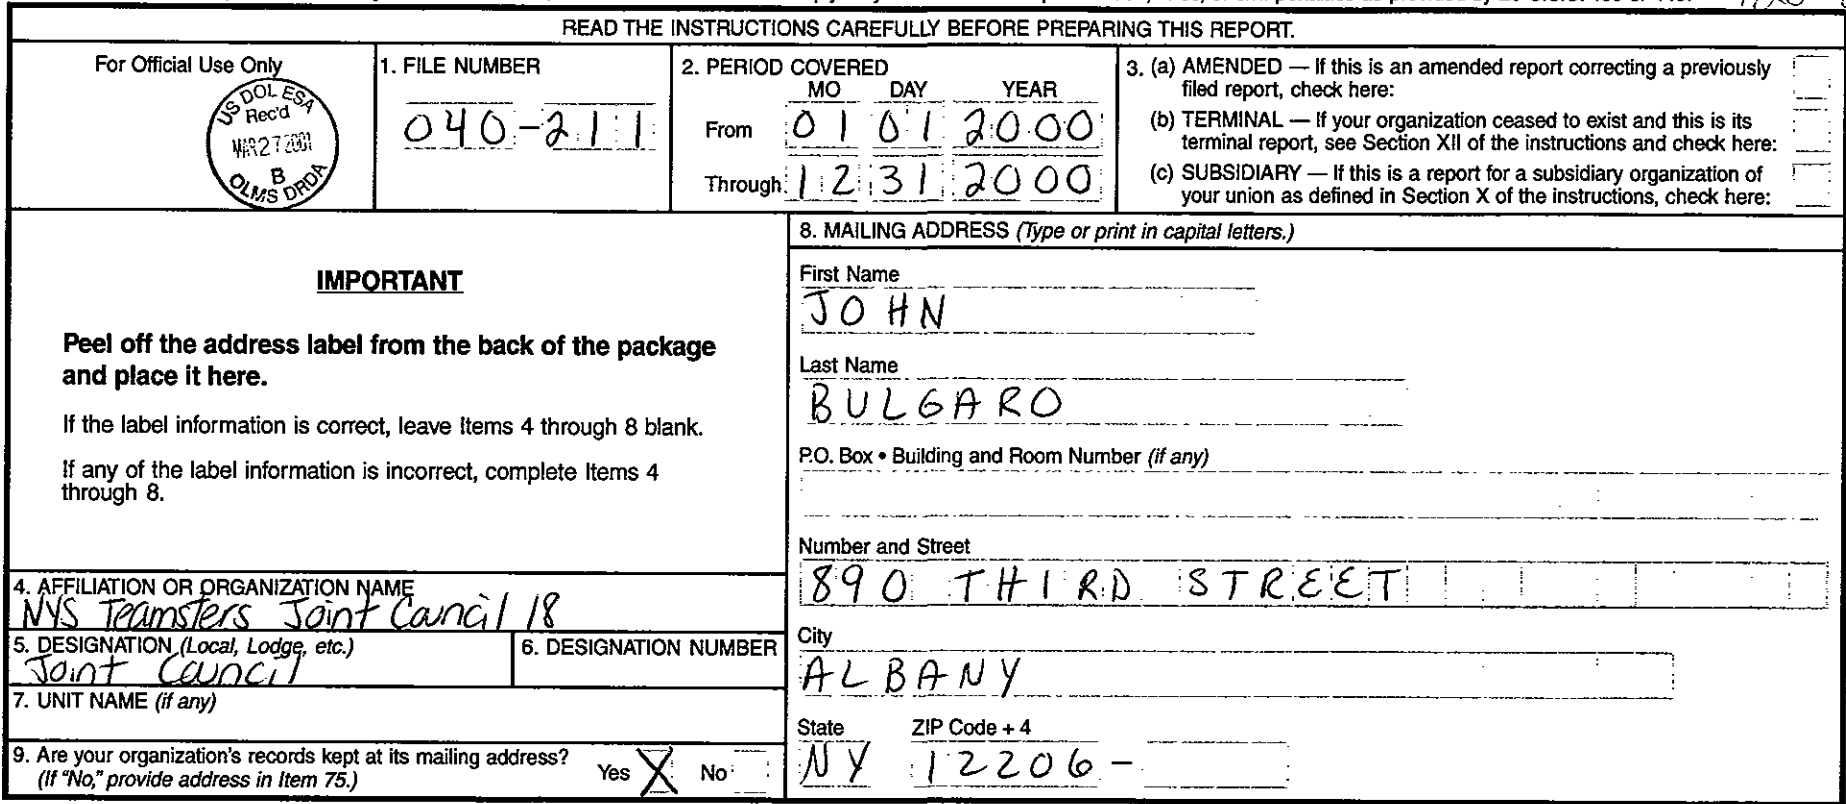 READ THE INSTRUCTIONS CAREFULLY BEFORE PREPARING THIS REPORT.
For Official Use Only
US DOL ESA
Rec'd
MAR 27 2001
B
OLMS DRDA
1. FILE NUMBER
040-211
2. PERIOD COVERED
MO DAY YEAR
From 01 01 2000
Through 12 31 2000
3. (a) AMENDED — If this is an amended report correcting a previously
filed report, check here:
(b) TERMINAL — If your organization ceased to exist and this is its
terminal report, see Section XII of the instructions and check here:
(c) SUBSIDIARY — If this is a report for a subsidiary organization of
your union as defined in Section X of the instructions, check here:
IMPORTANT
Peel off the address label from the back of the package
and place it here.
If the label information is correct, leave Items 4 through 8 blank.
If any of the label information is incorrect, complete Items 4
through 8.
4. AFFILIATION OR ORGANIZATION NAME
NYS Teamsters Joint Council 18
5. DESIGNATION (Local, Lodge, etc.)
Joint Council
6. DESIGNATION NUMBER
7. UNIT NAME (if any)
9. Are your organization's records kept at its mailing address?
(If "No," provide address in Item 75.)
Yes X No
8. MAILING ADDRESS (Type or print in capital letters.)
First Name
JOHN
Last Name
BULGARO
P.O. Box • Building and Room Number (if any)
Number and Street
890 THIRD STREET
City
ALBANY
State ZIP Code + 4
NY 12206 -